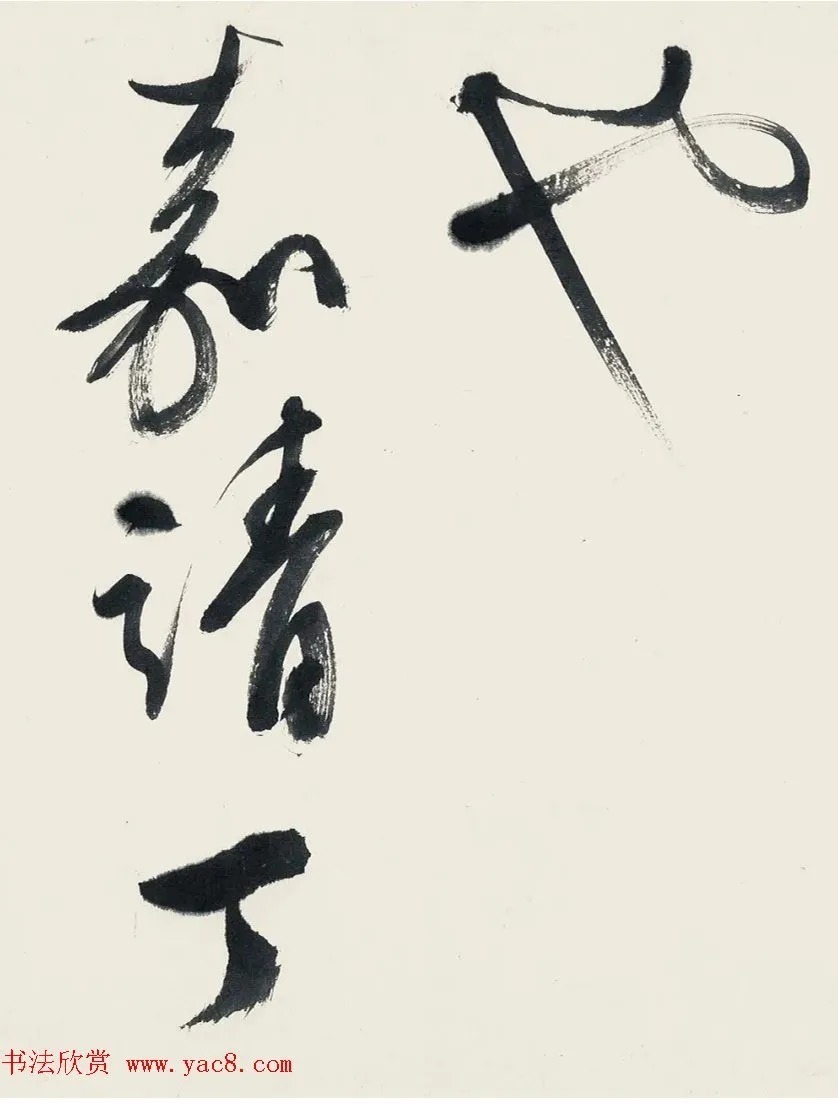 也
嘉靖丁
书法欣赏 www.yac8.com